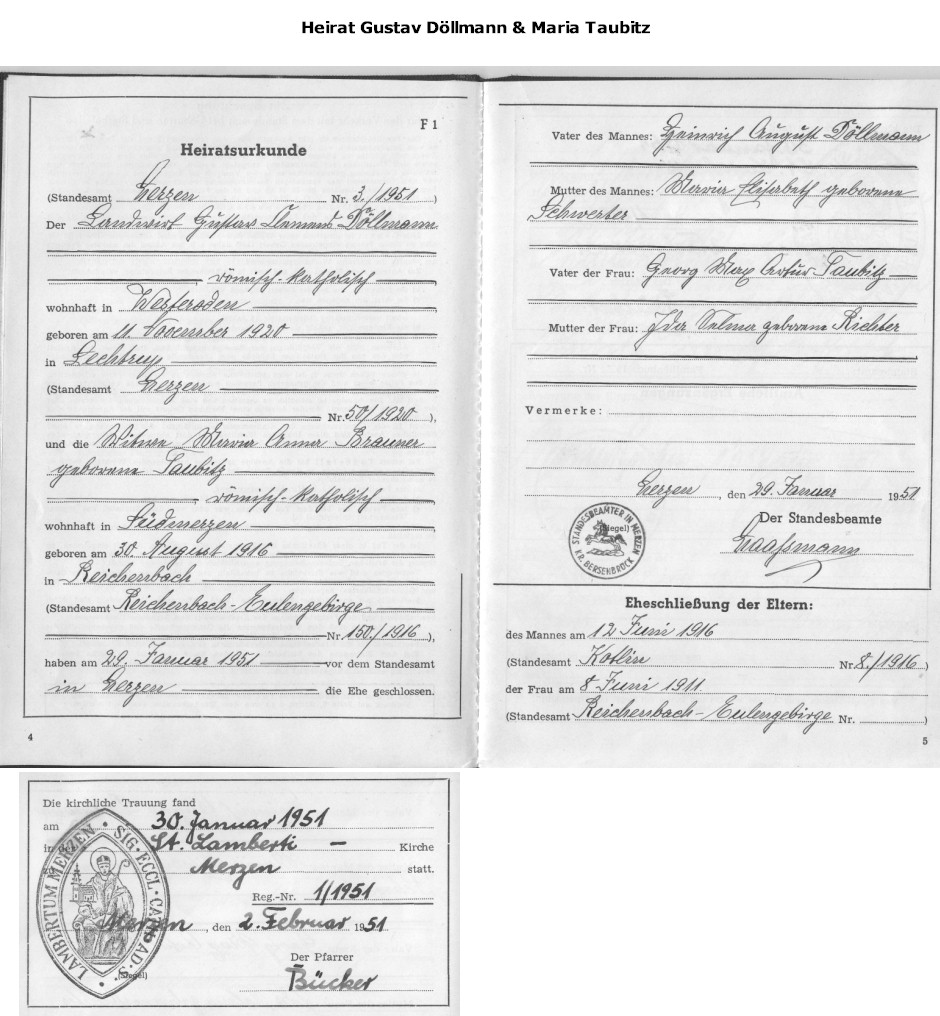 Heirat Gustav Döllmann & Maria Taubitz
F 1
Heiratsurkunde
(Standesamt Merzen Nr. 3./1951)
Der Landwirt Gustav Clemens Döllmann
römisch-katholisch
wohnhaft in Westeroden
geboren am 11. November 1920
in Lechtrup
(Standesamt Merzen
Nr. 50/1920),
und die Witwe Maria Anna Brauner
geborene Taubitz
römisch-katholisch
wohnhaft in Südmerzen
geboren am 30. August 1916
in Reichenbach
(Standesamt Reichenbach-Eulengebirge
Nr. 150./1916),
haben am 29. Januar 1951 vor dem Standesamt
in Merzen die Ehe geschlossen.
4
Vater des Mannes: Heinrich August Döllmann
Mutter des Mannes: Maria Elisabeth geborene
Schwerter
Vater der Frau: Georg Max Artur Taubitz
Mutter der Frau: Ida Selma geborene Richter
Vermerke:
Merzen, den 29. Januar 1951
(Siegel)
STANDESBEAMTER IN MERZEN
KR. BERSENBRÜCK
Der Standesbeamte
Eheschließung der Eltern:
des Mannes am 12 Juni 1916
(Standesamt Nr. 8./1916)
der Frau am 8 Juni 1911
(Standesamt Reichenbach-Eulengebirge Nr. )
5
Die kirchliche Trauung fand
am 30. Januar 1951
in der St. Lamberti – Kirche
Merzen statt.
Reg.-Nr. 1/1951
Merzen, den 2. Februar 1951
SIG. ECCL. CATH. AD S. LAMBERTUM MERZEN
(Siegel)
Der Pfarrer
Bücker